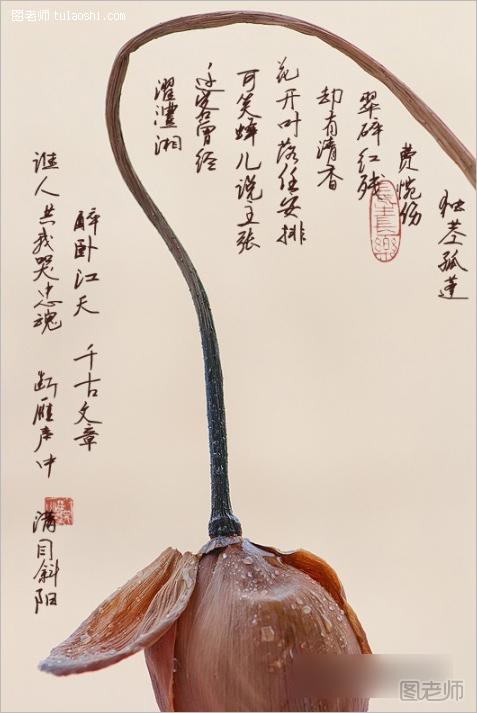 图老师 tulaoshi.com
独茎孤莲
费恍伤
翠碎红残
却有清香
花开叶落任安排
可笑蝉儿说主张
迁客曾经
濯澧湘
醉卧江天 千古文章
谁人共我哭忠魂 断雁声中 满目斜阳
图老师